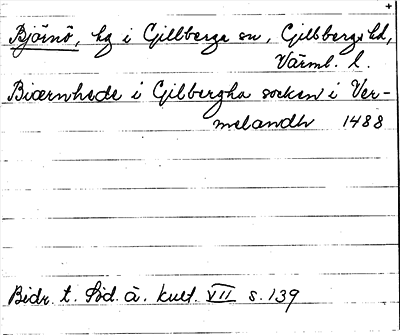 +
Björnö, hg i Gillberga sn, Gillbergs hd,
Värml. l.
Biærnhede i Gilbergha socken i Ver-
melandh 1488
Bidr. t. Söd. å. kult. VII s. 139